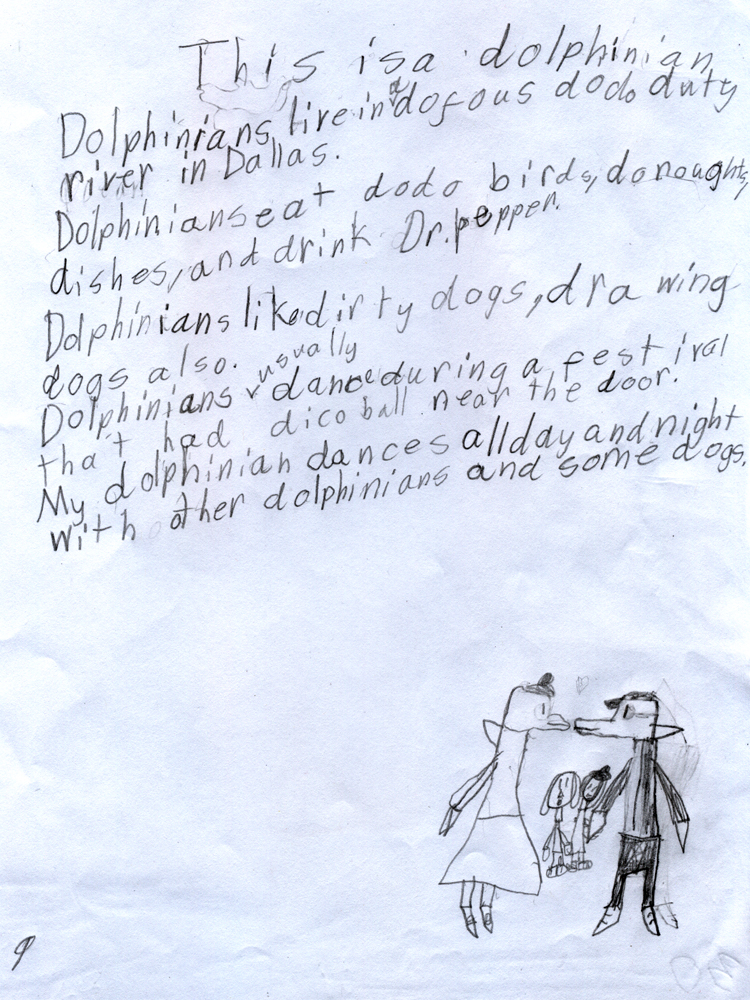 This is a dolphinian
Dolphinians live in a dofous dodo duty
river in Dallas.
Dolphinians eat dodo birds, donoughts,
dishes, and drink Dr. pepper.
Dolphinians like dirty dogs, drawing
dogs also.
Dolphinians usually dance during a festival
that had dico ball near the door.
My dolphinian dances all day and night
with other dolphinians and some dogs.
9